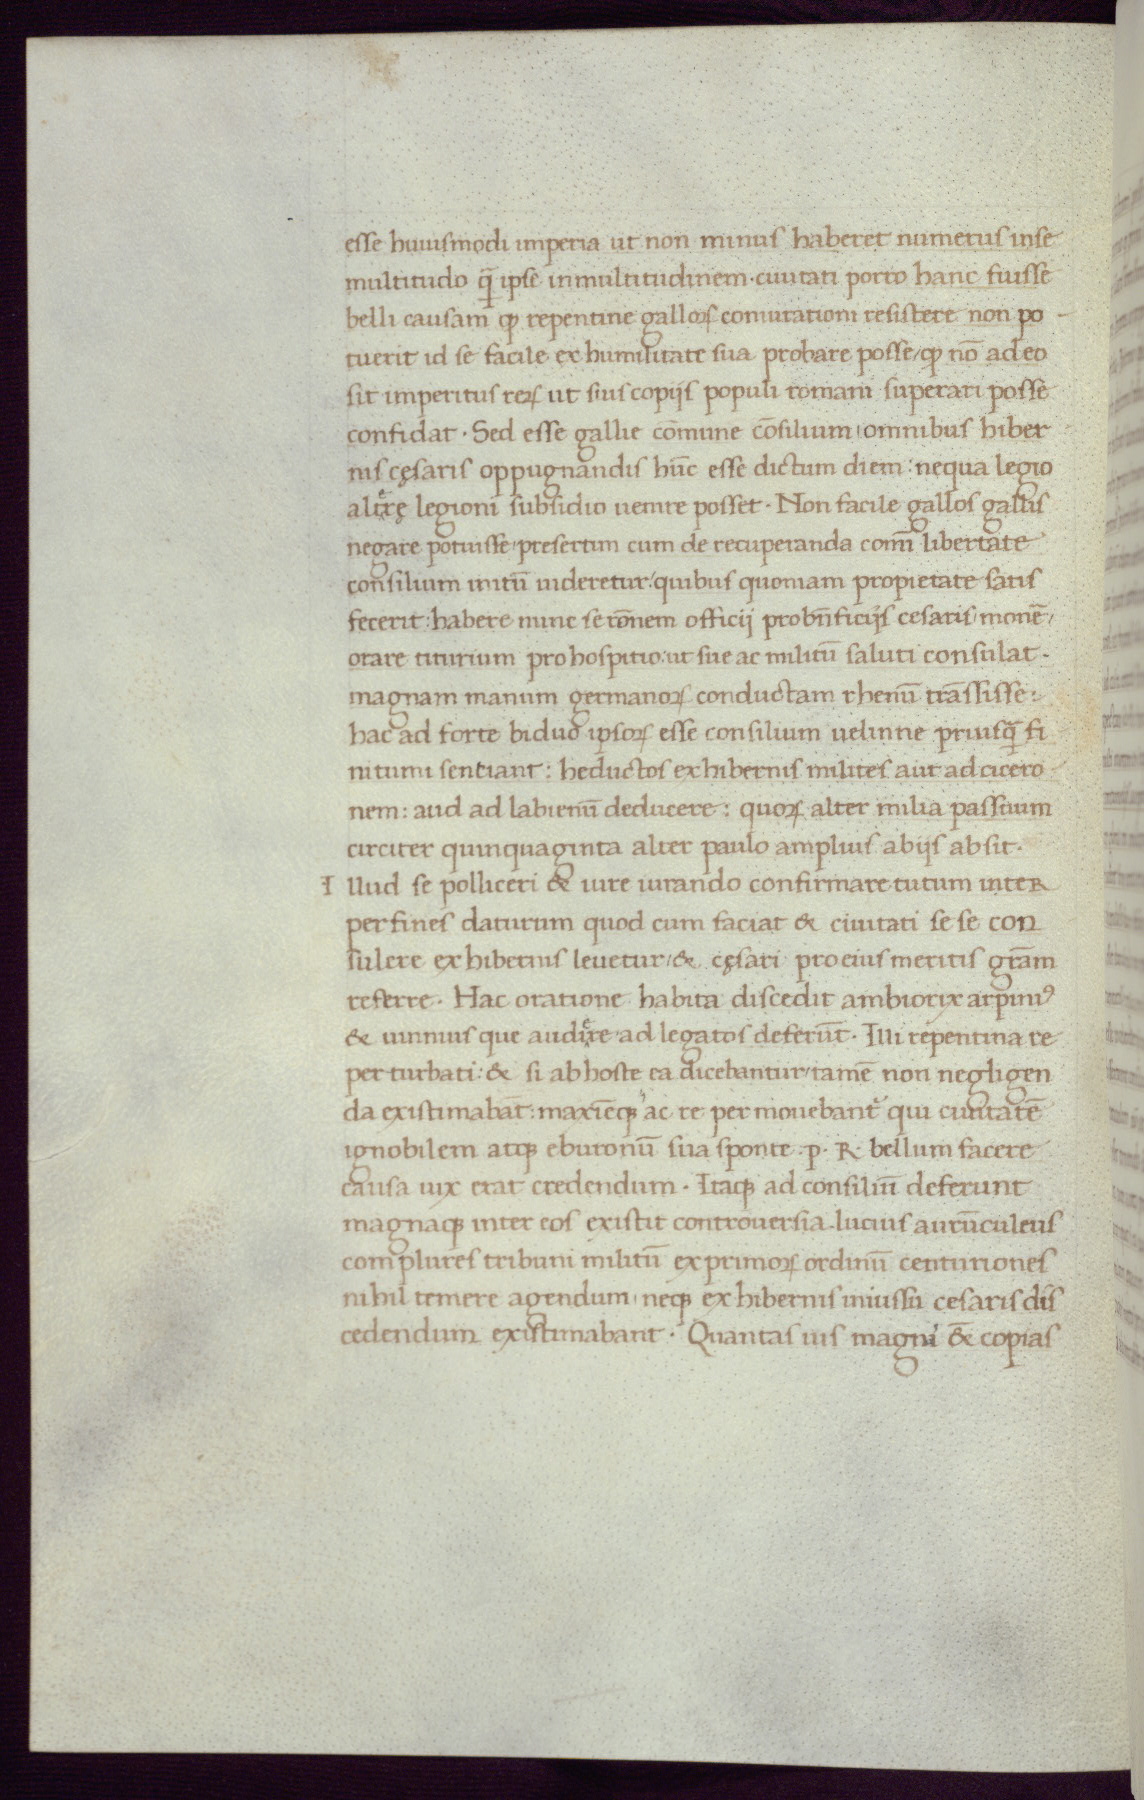 esse huiusmodi imperia ut non minus haberet numerus inse
multitudo q̄ ipse inmultitudinem · ciuitati porro hanc fuisse
belli causam qp repentine galloꝝ coniurationi resistere non po
tuerit id se facile ex humilitate sua probare posse / qp nō adeo
sit imperitus reꝝ ut suis copijs populi romani superari posse
confidat · Sed esse gallie cōmune cōsilium / omnibus hiber
nis cęsaris oppugnandis hūc esse dictum diem : nequa legio
altꝛ̄ę legioni subsidio uenire posset · Non facile gallos gallis
negare potuisse / presertim cum de recuperanda com̄i libertate
consilium initū uideretur / quibus quoniam propietate satis
fecerit : habere nunc se rōnem officij probn̄ficijs cesaris / monē /
orare titurium prohospitio : ut sue ac militū saluti consulat ·
magnam manum germanoꝝ conductam rhenū trāssisse :
hac ad forte biduo ipsoꝝ esse consilium uelintne priusq̄ fi
nitumi senciant : heductos exhibernis milites aut adcicero
nem : aud ad labienū deducere : quoꝝ alter milia passuum
circiter quinquaginta alter paulo amplius abijs absit ·
Illud se polliceri & iure iurando confirmare tutum inter
perfines daturum quod cum faciat & ciuitati se se con
sulere exhibernis leuetur / & cęsari proeius meritis grām
referre · Hac oratione habita discedit ambiorix arpiniꝰ
& uinnius que audiꝛ̄e / ad legatos deferūt · Illi repentina re
perturbati : & si abhoste ea dicebantur / tamē non negligen
da existimabāt : maxīeqꝫ ac re permouebantᷣ qui ciuitatē
ignobilem atqꝫ eburonū sua sponte · p · R · bellum facere
causa uix erat credendum · Itaqꝫ ad consiliū deferunt
magnaqꝫ inter eos existit controuersia · lucius aurūculeus
complures tribuni militū exprimoꝝ ordinū centuriones
nihil temere agendum / neqꝫ exhibernis iniussu cesaris dis
cedendum existimabant · Quantas uis magni &̄ copias